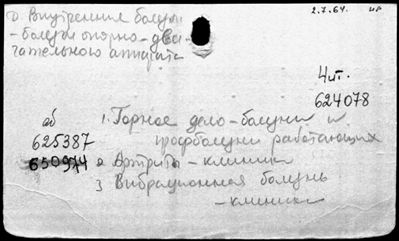 2.7.64.
Внутренние болезни
- болезни опорно-дви-
гательного аппарата
4 шт.
624078
аб
1. Горное дело - болезни и
625387
профболезни работающих
650974
2 Артриты - клиника
3 Вибрационная болезнь
- клиника